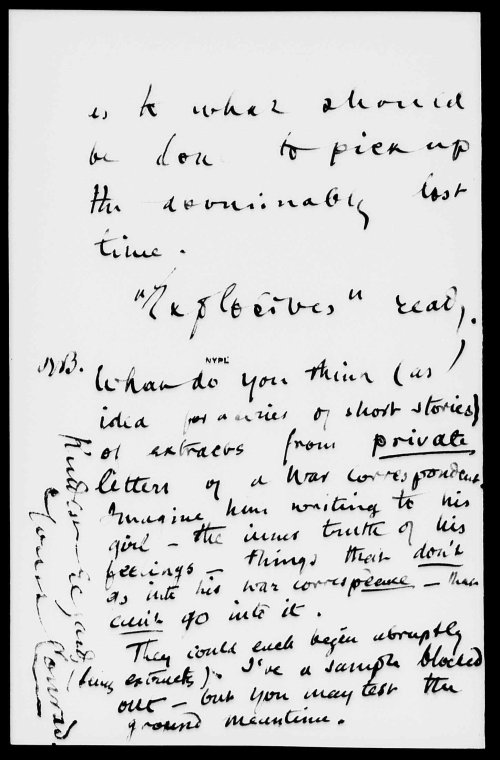 as to what should
be done to pick up
the abominably lost
time.
"Explosives" ready.
NYPL
NB. What do you think (as
idea for a series of short stories)
of extracts from private
letters of a War correspondent.
Imagine him writing to his
girl – the inner truth of his
feelings – things that don't
go into his war correspce – that
can't go into it.
They could each begin abruptly
(being extracts). I've a sample blocked
out – but you may test the
ground meantime.
Kindest regards
Yours Conrad.